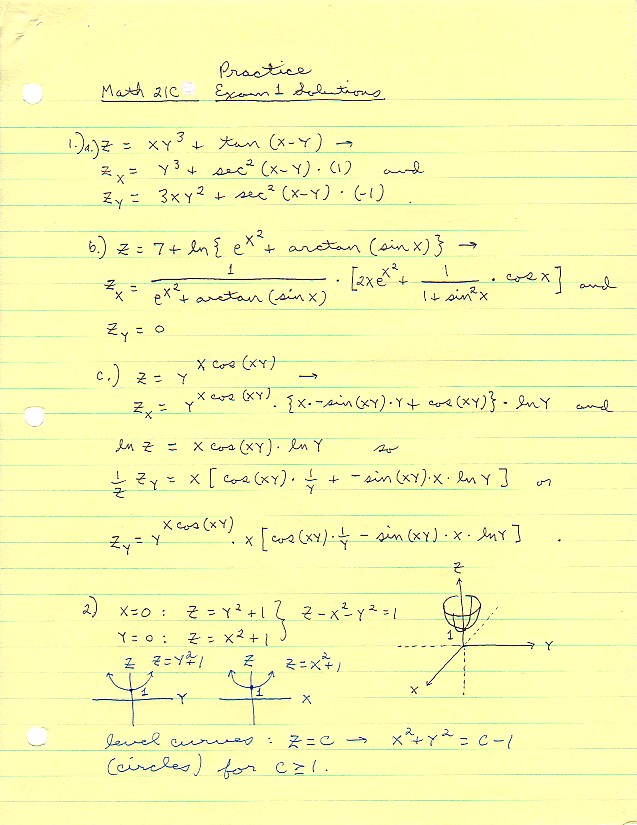 Practice
Math 21C Exam 1 Solutions
1.) a.) z = xy³ + tan (x-y) →
z_x = y³ + sec² (x-y) · (1) and
z_y = 3xy² + sec² (x-y) · (-1)
b.) z = 7 + ln{ e^x² + arctan (sin x)} →
z_x = 1/(e^x² + arctan (sin x)) · [2xe^x² + 1/(1 + sin²x) · cos x] and
z_y = 0
c.) z = y^(x cos (xy)) →
z_x = y^(x cos (xy)) · {x · -sin(xy) · y + cos (xy)} · ln y and
ln z = x cos (xy) · ln y so
1/z z_y = x [ cos (xy) · 1/y + -sin (xy) · x · ln y ] or
z_y = y^(x cos (xy)) · x [cos (xy) · 1/y - sin (xy) · x · ln y ] .
2.) x=0 : z = y² + 1 } z - x² - y² = 1
y=0 : z = x² + 1
z
1
y
x
z z = y² + 1 z z = x² + 1
1 y 1 x
level curves : z = c → x² + y² = c - 1
(circles) for c ≥ 1.